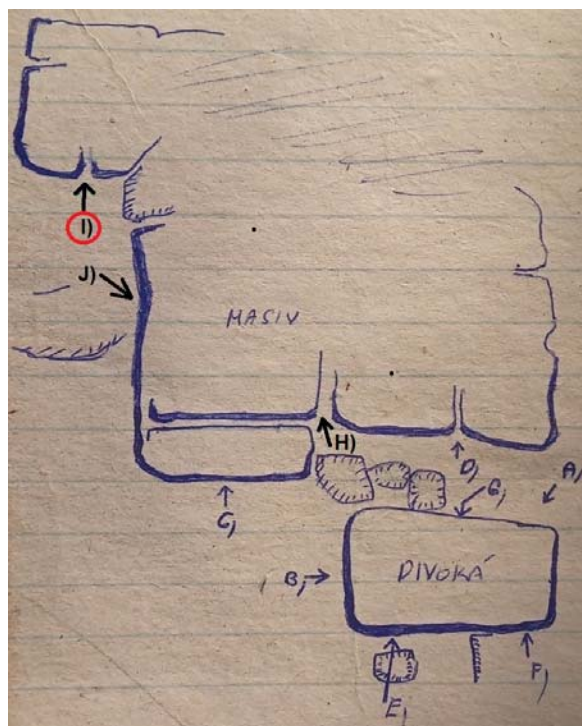 I)
J)
MASIV
H)
D)
G)
A)
C)
B)
DIVOKÁ
F)
E)